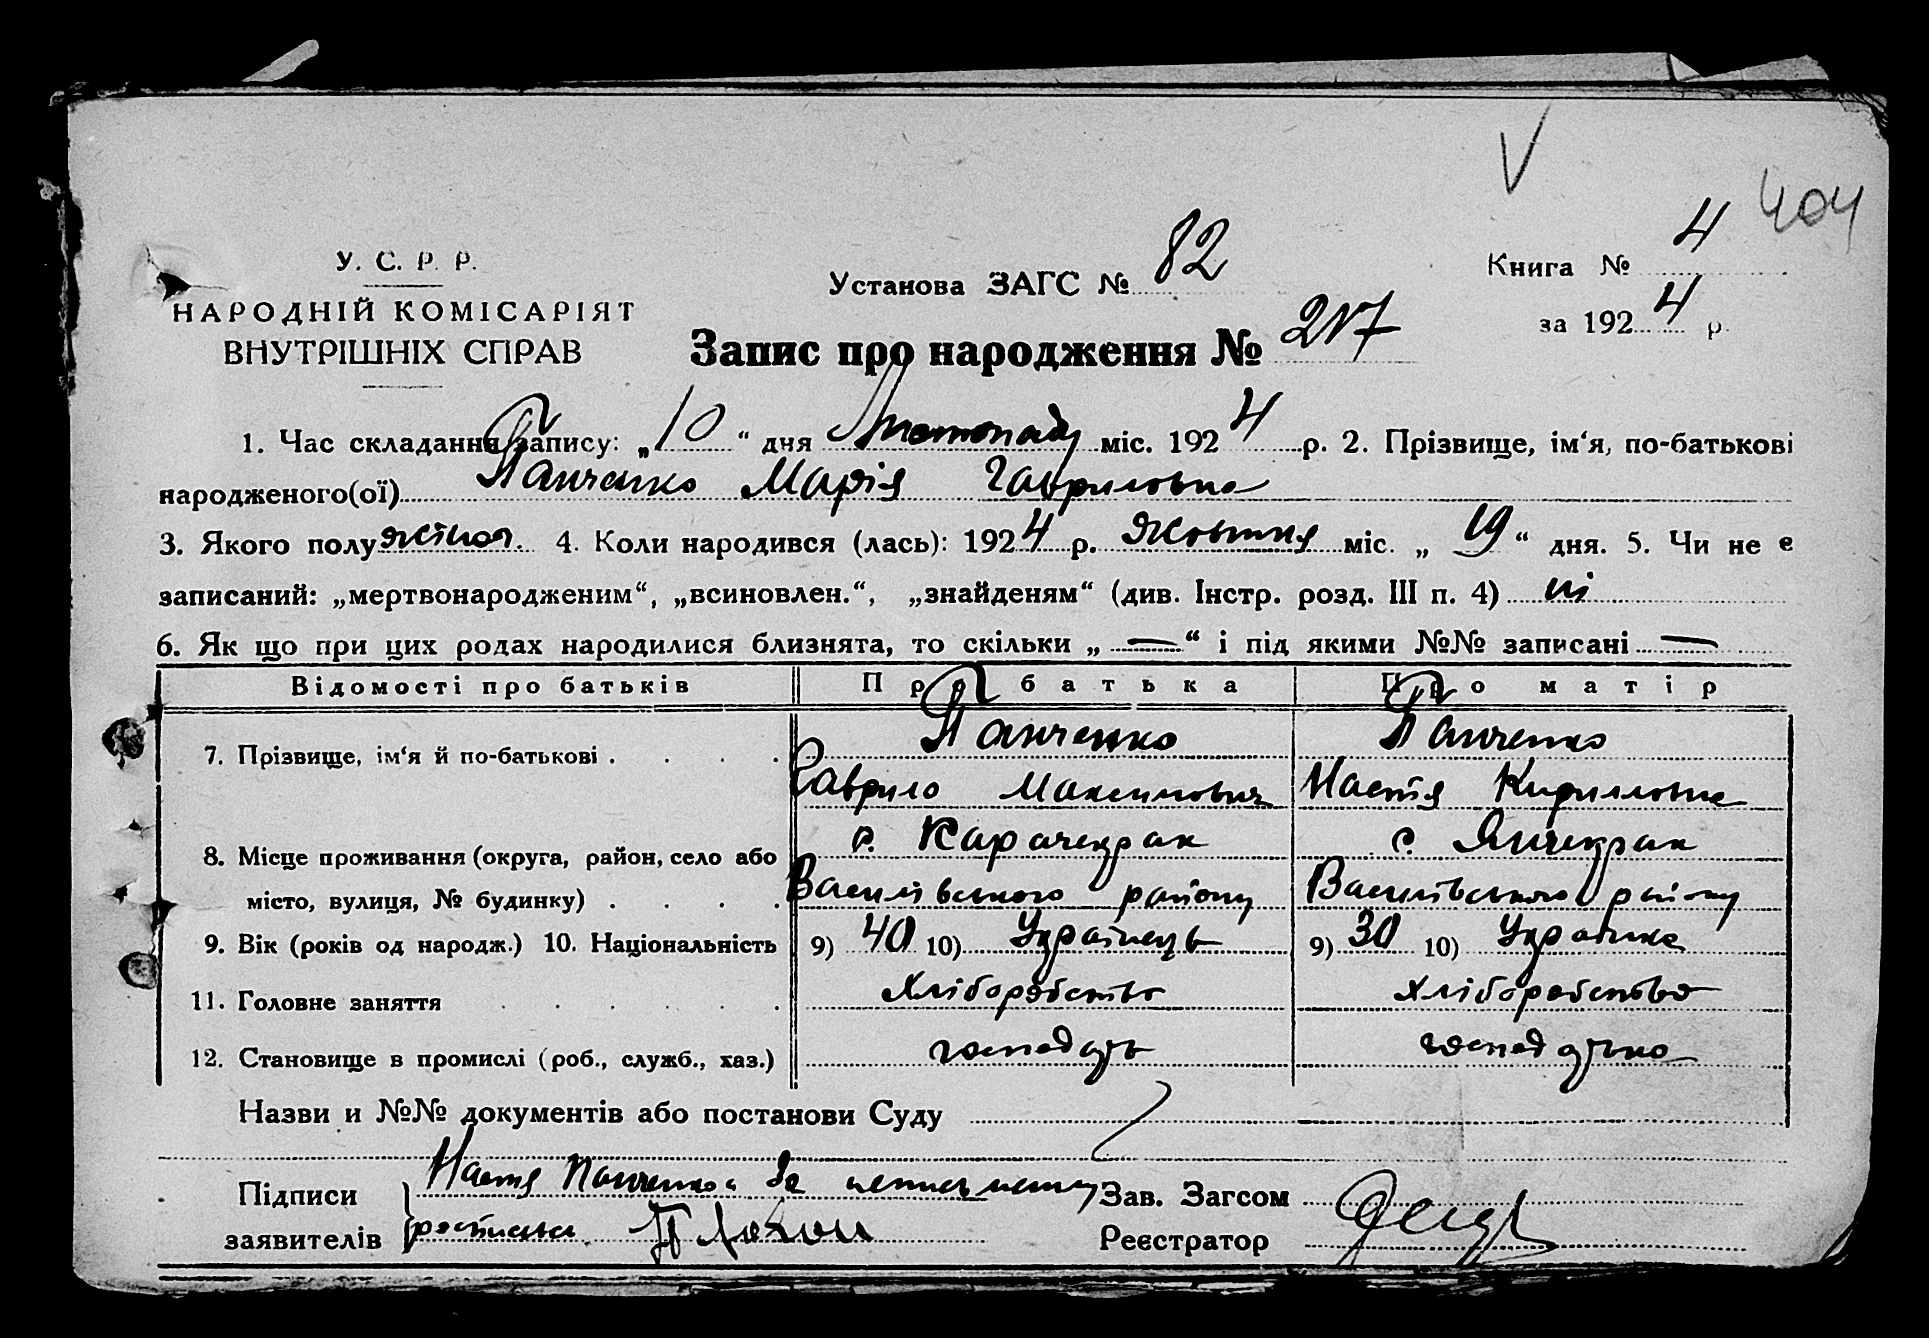 404
У. С. Р. Р.
НАРОДНІЙ КОМІСАРІЯТ
ВНУТРІШНІХ СПРАВ
Установа ЗАГС № 82
Книга № 4
за 1924 р.
Запис про народження № 217
1. Час складання запису: „10“ дня Листопаду міс. 1924 р. 2. Прізвище, ім‘я, по-батькові
народженого(ої) Панченко Марія Гавриловна
3. Якого полу жіноч. 4. Коли народився (лась): 1924 р. Жовтня міс. „19“ дня. 5. Чи не є
записаний: „мертвонародженим“, „всиновлен.“, „знайденям“ (див. Інстр. розд. III п. 4) ні
6. Як що при цих родах народилися близнята, то скільки „—“ і під якими №№ записані —
Відомості про батьків Про батька Про матір
7. Прізвище, ім‘я й по-батькові . . . . Панченко Панченко
Гаврило Максимович Настя Кирилловна
8. Місце проживання (округа, район, село або с. Карачекрак с. Янчекрак
місто, вулиця, № будинку) . . . . Василівського району Василівського району
9. Вік (років од народж.) 10. Національність 9) 40 10) Українець 9) 30 10) Українка
11. Головне заняття . . . . . . Хліборобство хліборобство
12. Становище в промислі (роб., служб., хаз.) господарь господарька
Назви и №№ документів або постанови Суду
Підписи Настя Панченко За неписьмену Зав. Загсом
заявителів Реєстратор